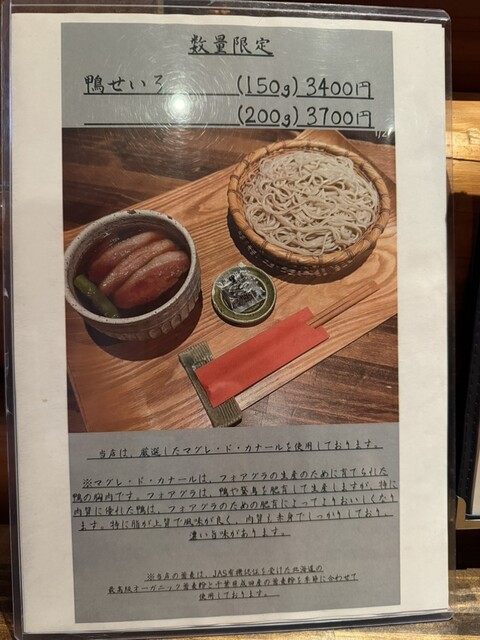 数量限定
鴨せいろ (150g) 3400円
(200g) 3700円
当店は、厳選したマグレ・ド・カナールを使用しております。
※マグレ・ド・カナールは、フォアグラの生産のために育てられた
鴨の胸肉です。フォアグラは、鴨や鵞鳥を肥育して生産しますが、特に
肉質に優れた鴨は、フォアグラのための肥育によってよりおいしくなり
ます。特に脂が上質で風味が良く、肉質も赤身でしっかりしており、
濃い旨味があります。
※当店の蕎麦は、JAS有機認証を受けた北海道の
最高級オーガニック蕎麦粉と千葉県成田産の蕎麦粉を季節に合わせて
使用しております。